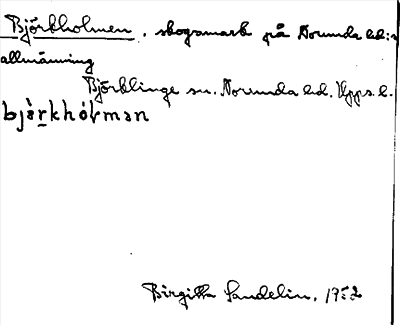 Björkholmen, skogsmark på Norunda hd:s
allmänning
Björklinge sn. Norunda hd. Upps. l.
bjär̠khólmən
Birgitta Sandelin, 1952